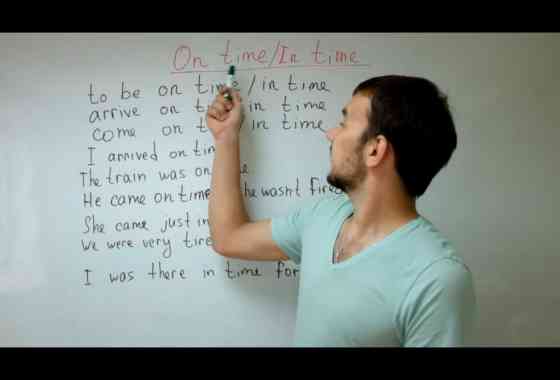 On time/In time
to be on time / in time
arrive on in time
come on in time
I arrived on
The train was on
He came on time he wasnt
She came just in
We were very
I was there in time for